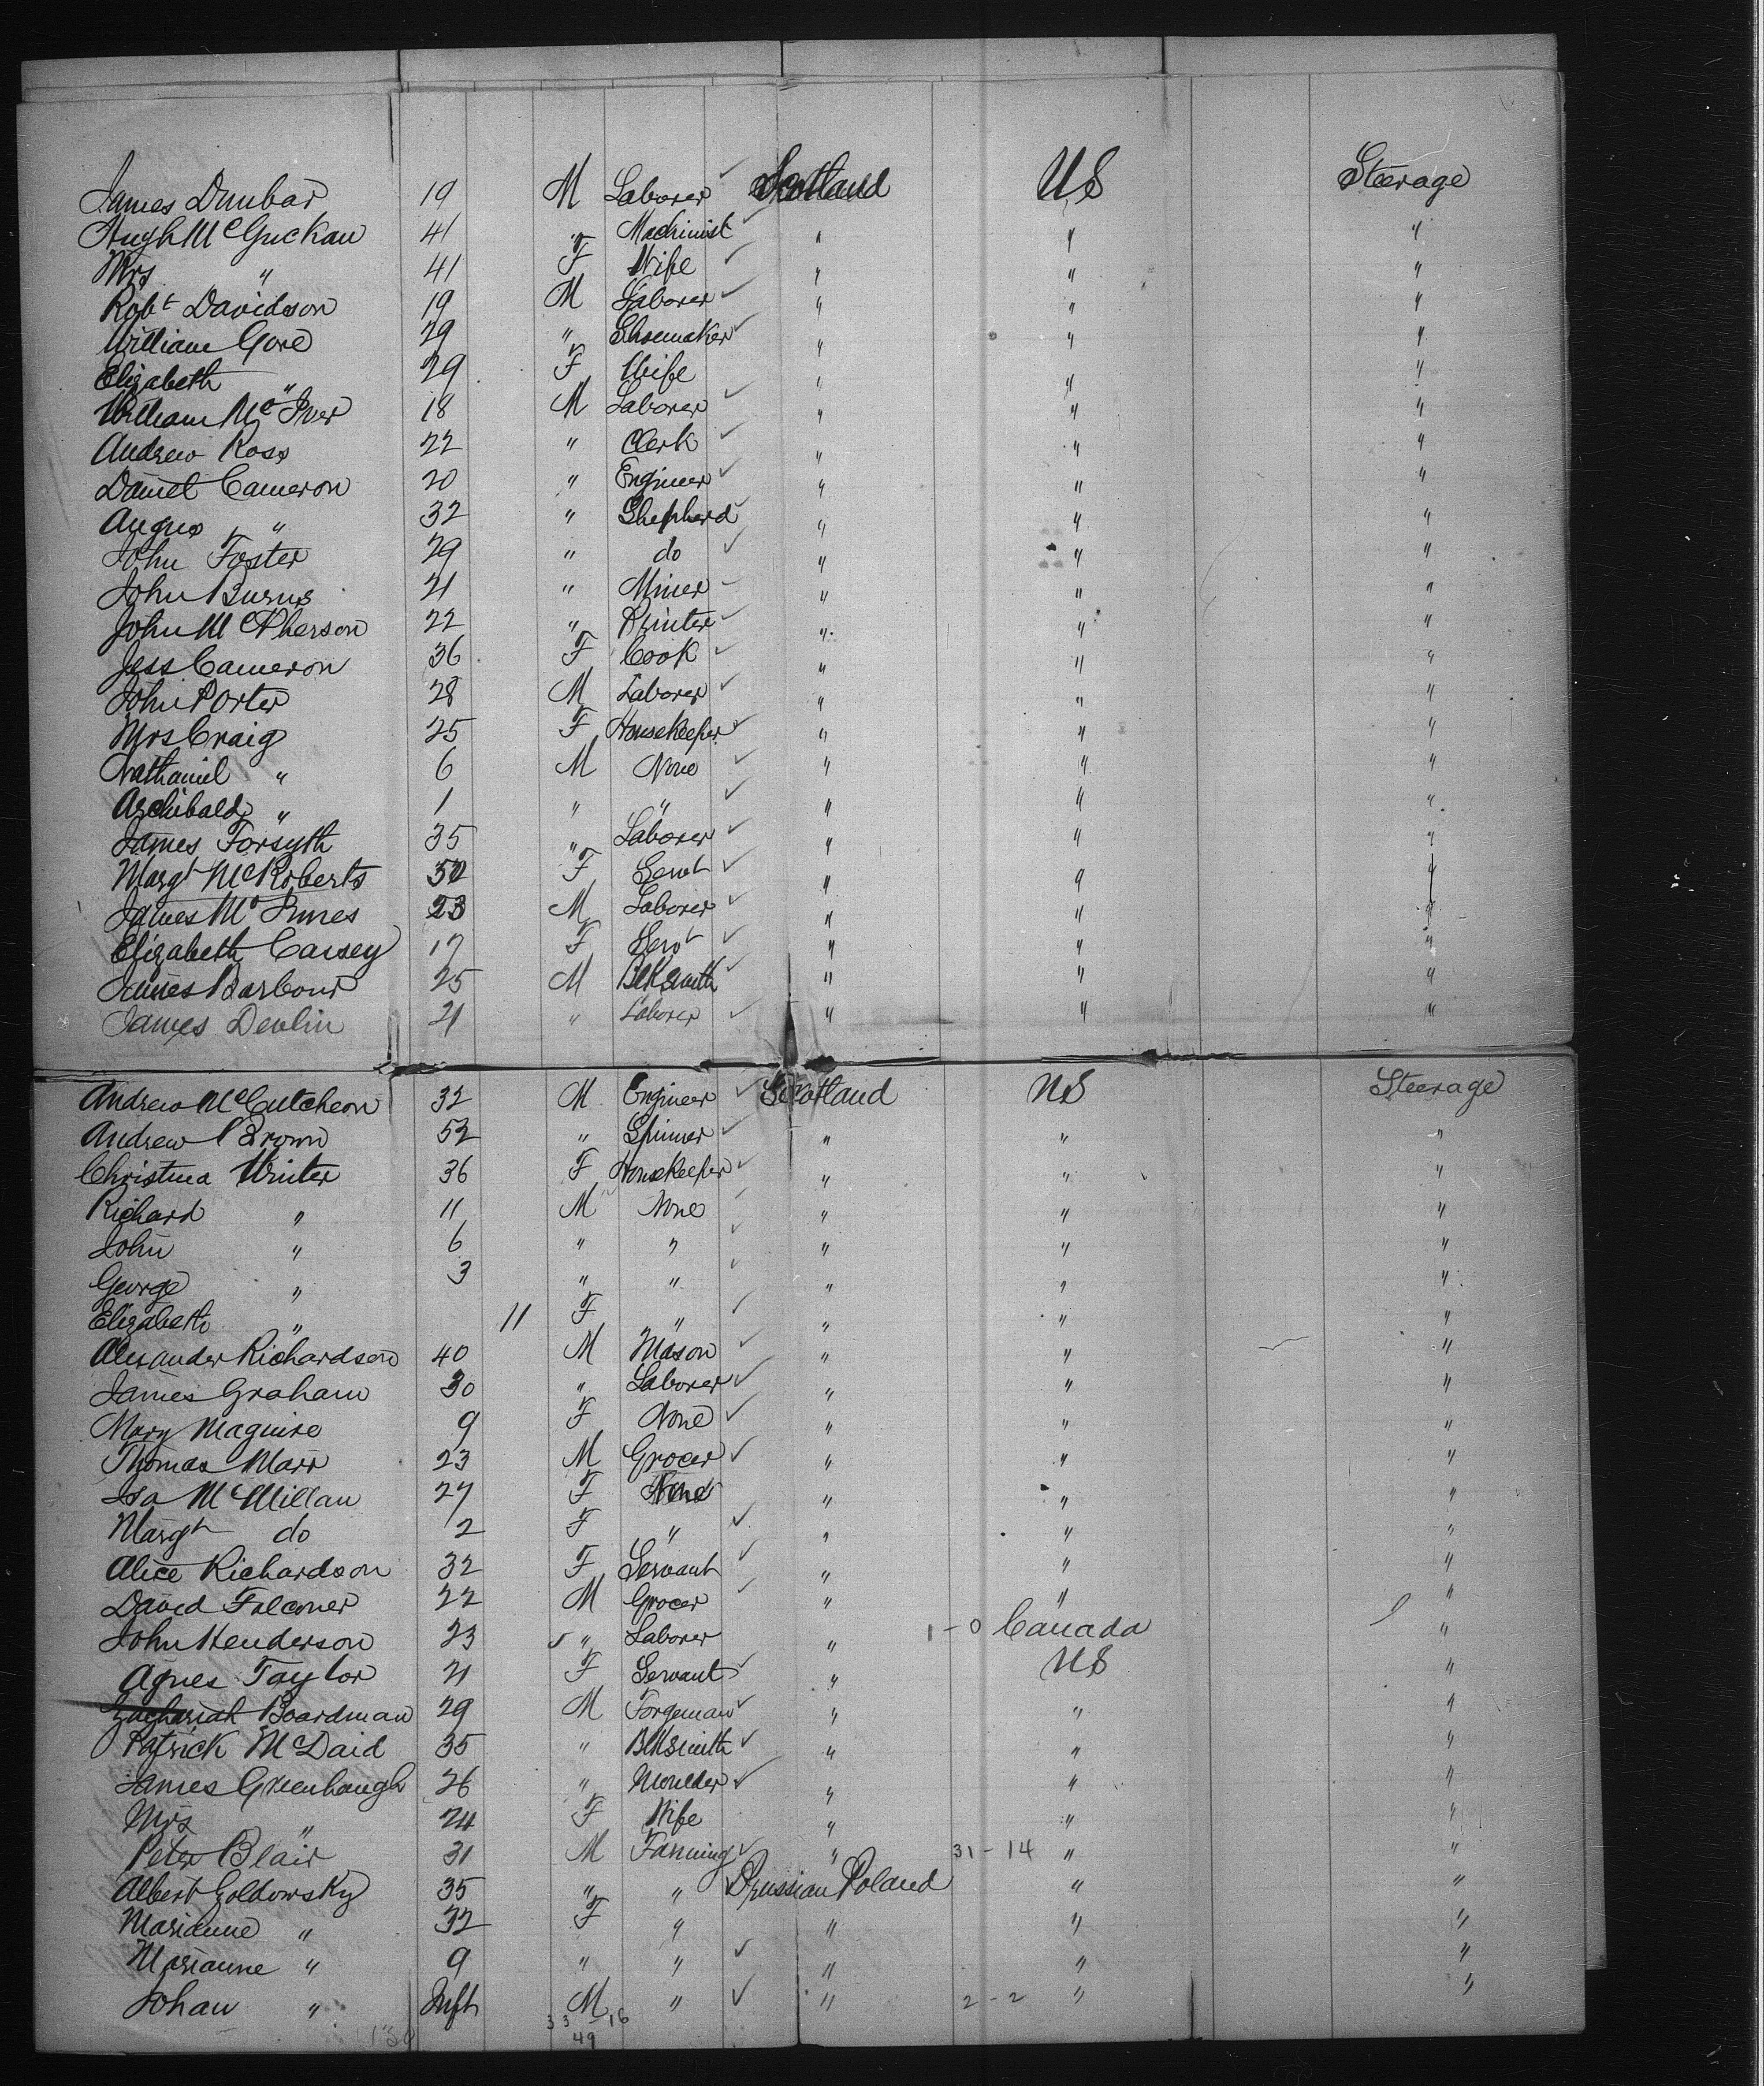 James Dunbar 19 M Laborer ✓ Scotland US Steerage
Hugh McGuckan 41 " Machinist ✓ " " "
Mrs " 41 F Wife ✓ " " "
Robt Davidson 19 M Laborer ✓ " " "
William Gore 29 " Shoemaker ✓ " " "
Elizabeth " 29 F Wife " " "
William McIver 18 M Laborer ✓ " " "
Andrew Ross 22 " Clerk ✓ " " "
Daniel Cameron 20 " Engineer ✓ " " "
Angus " 32 " Shepherd ✓ " " "
John Foster 29 " do ✓ " " "
John Burns 21 " Miner ✓ " " "
John McPherson 22 " Printer ✓ " " "
Jess Cameron 36 F Cook ✓ " " "
John Porter 28 M Laborer ✓ " " "
Mrs Craig 25 F Housekeeper ✓ " " "
Nathaniel " 6 M None ✓ " " "
Archibald " 1 " " ✓ " " "
James Forsyth 35 " Laborer ✓ " " "
Margt McRoberts F Servt ✓ " " "
James McInnes 23 M Laborer ✓ " " "
Elizabeth 17 F Servt ✓ " " "
James Barbour 25 M Blksmith ✓ " " "
James Devlin 21 " Laborer ✓ " " "
Andrew McCutcheon 32 M Engineer ✓ Scotland US Steerage
Andrew Brown 52 " Spinner ✓ " " "
Christina Winter 36 F Housekeeper ✓ " " "
Richard " 11 M None ✓ " " "
John " 6 " " ✓ " " "
George " 3 " " ✓ " " "
Elizabeth " 11 F " ✓ " " "
Alexander Richardson 40 M Mason ✓ " " "
James Graham 30 " Laborer ✓ " " "
Mary Maguire 9 F None ✓ " " "
Thomas Marr 23 M Grocer ✓ " " "
Isa McMillan 27 F None " " "
Margt do 2 F " ✓ " " "
Alice Richardson 32 F Servant ✓ " " "
David Falconer 22 M Grocer ✓ " " "
John Henderson 23 ✓ " Laborer " 1-0 Canada "
Agnes Taylor 21 F Servant ✓ " US "
Zachariah Boardman 29 M Forgeman ✓ " " "
Patrick McDaid 35 " Blksmith ✓ " " "
James Greenhaugh 26 " Moulder ✓ " " "
Mrs " 24 F Wife " " "
Peter Blair 31 M Farming ✓ " 31-14 " "
Albert Goldowsky 35 " " Prussian Poland " "
Marianne " 32 F " " " "
Marianne " 9 " " ✓ " " "
Johan " Inft M " ✓ " 2-2 " "
130 33 - 16
49